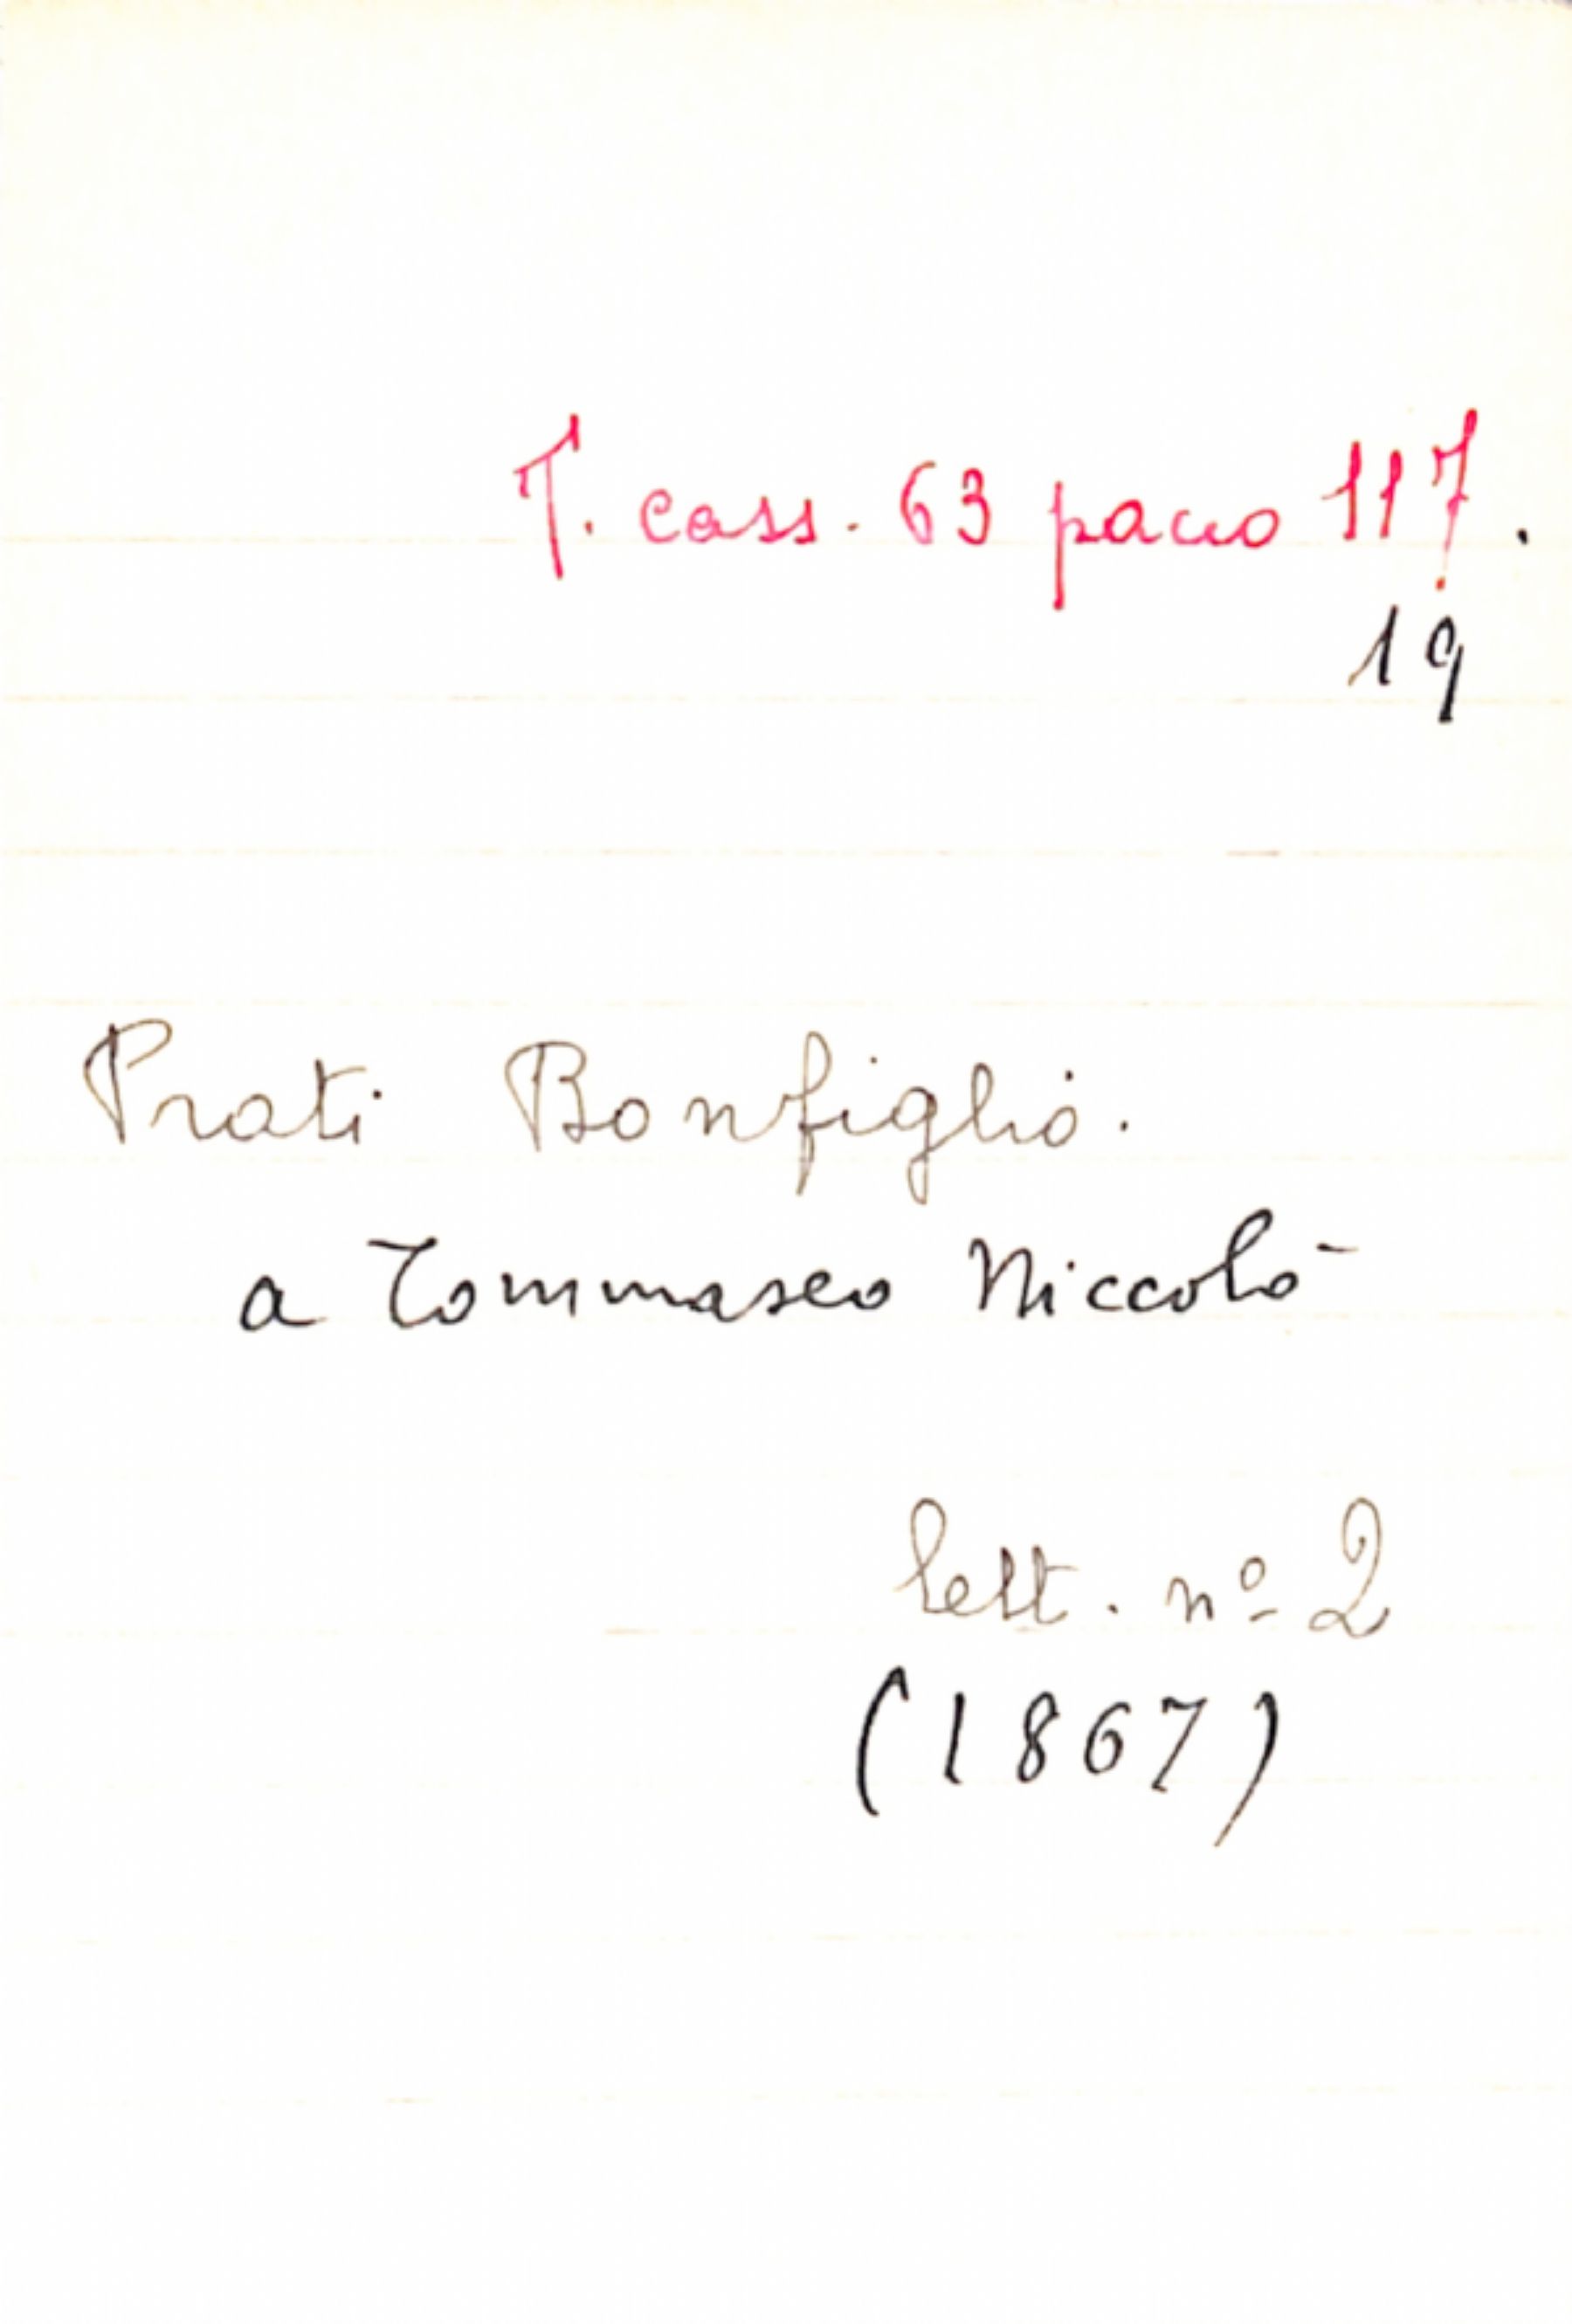 T. cass. 63 pacco 117.
19
Prati Bonfiglio.
a Tommaseo Niccolò
lett. nº 2
(1867)